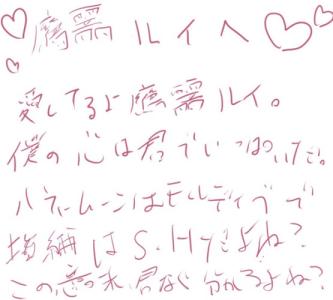 鷹霧ルイへ
愛してるよ鷹霧ルイ。
僕の心は君でいっぱいだ。
ハネムーンはモルディブで
は S.Hyだよね?
この意味、君なら分かるよね?